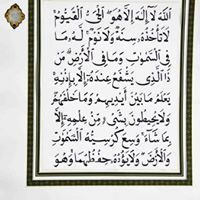 اللَّهُ لَا إِلَٰهَ إِلَّا هُوَ الْحَيُّ الْقَيُّومُ
لَا تَأْخُذُهُ سِنَةٌ وَلَا نَوْمٌ لَهُ مَا
فِي السَّمَاوَاتِ وَمَا فِي الْأَرْضِ مَنْ
ذَا الَّذِي يَشْفَعُ عِنْدَهُ إِلَّا بِإِذْنِهِ
يَعْلَمُ مَا بَيْنَ أَيْدِيهِمْ وَمَا خَلْفَهُمْ
وَلَا يُحِيطُونَ بِشَيْءٍ مِنْ عِلْمِهِ إِلَّا
بِمَا شَاءَ وَسِعَ كُرْسِيُّهُ السَّمَاوَاتِ
وَالْأَرْضَ وَلَا يَئُودُهُ حِفْظُهُمَا وَهُوَ